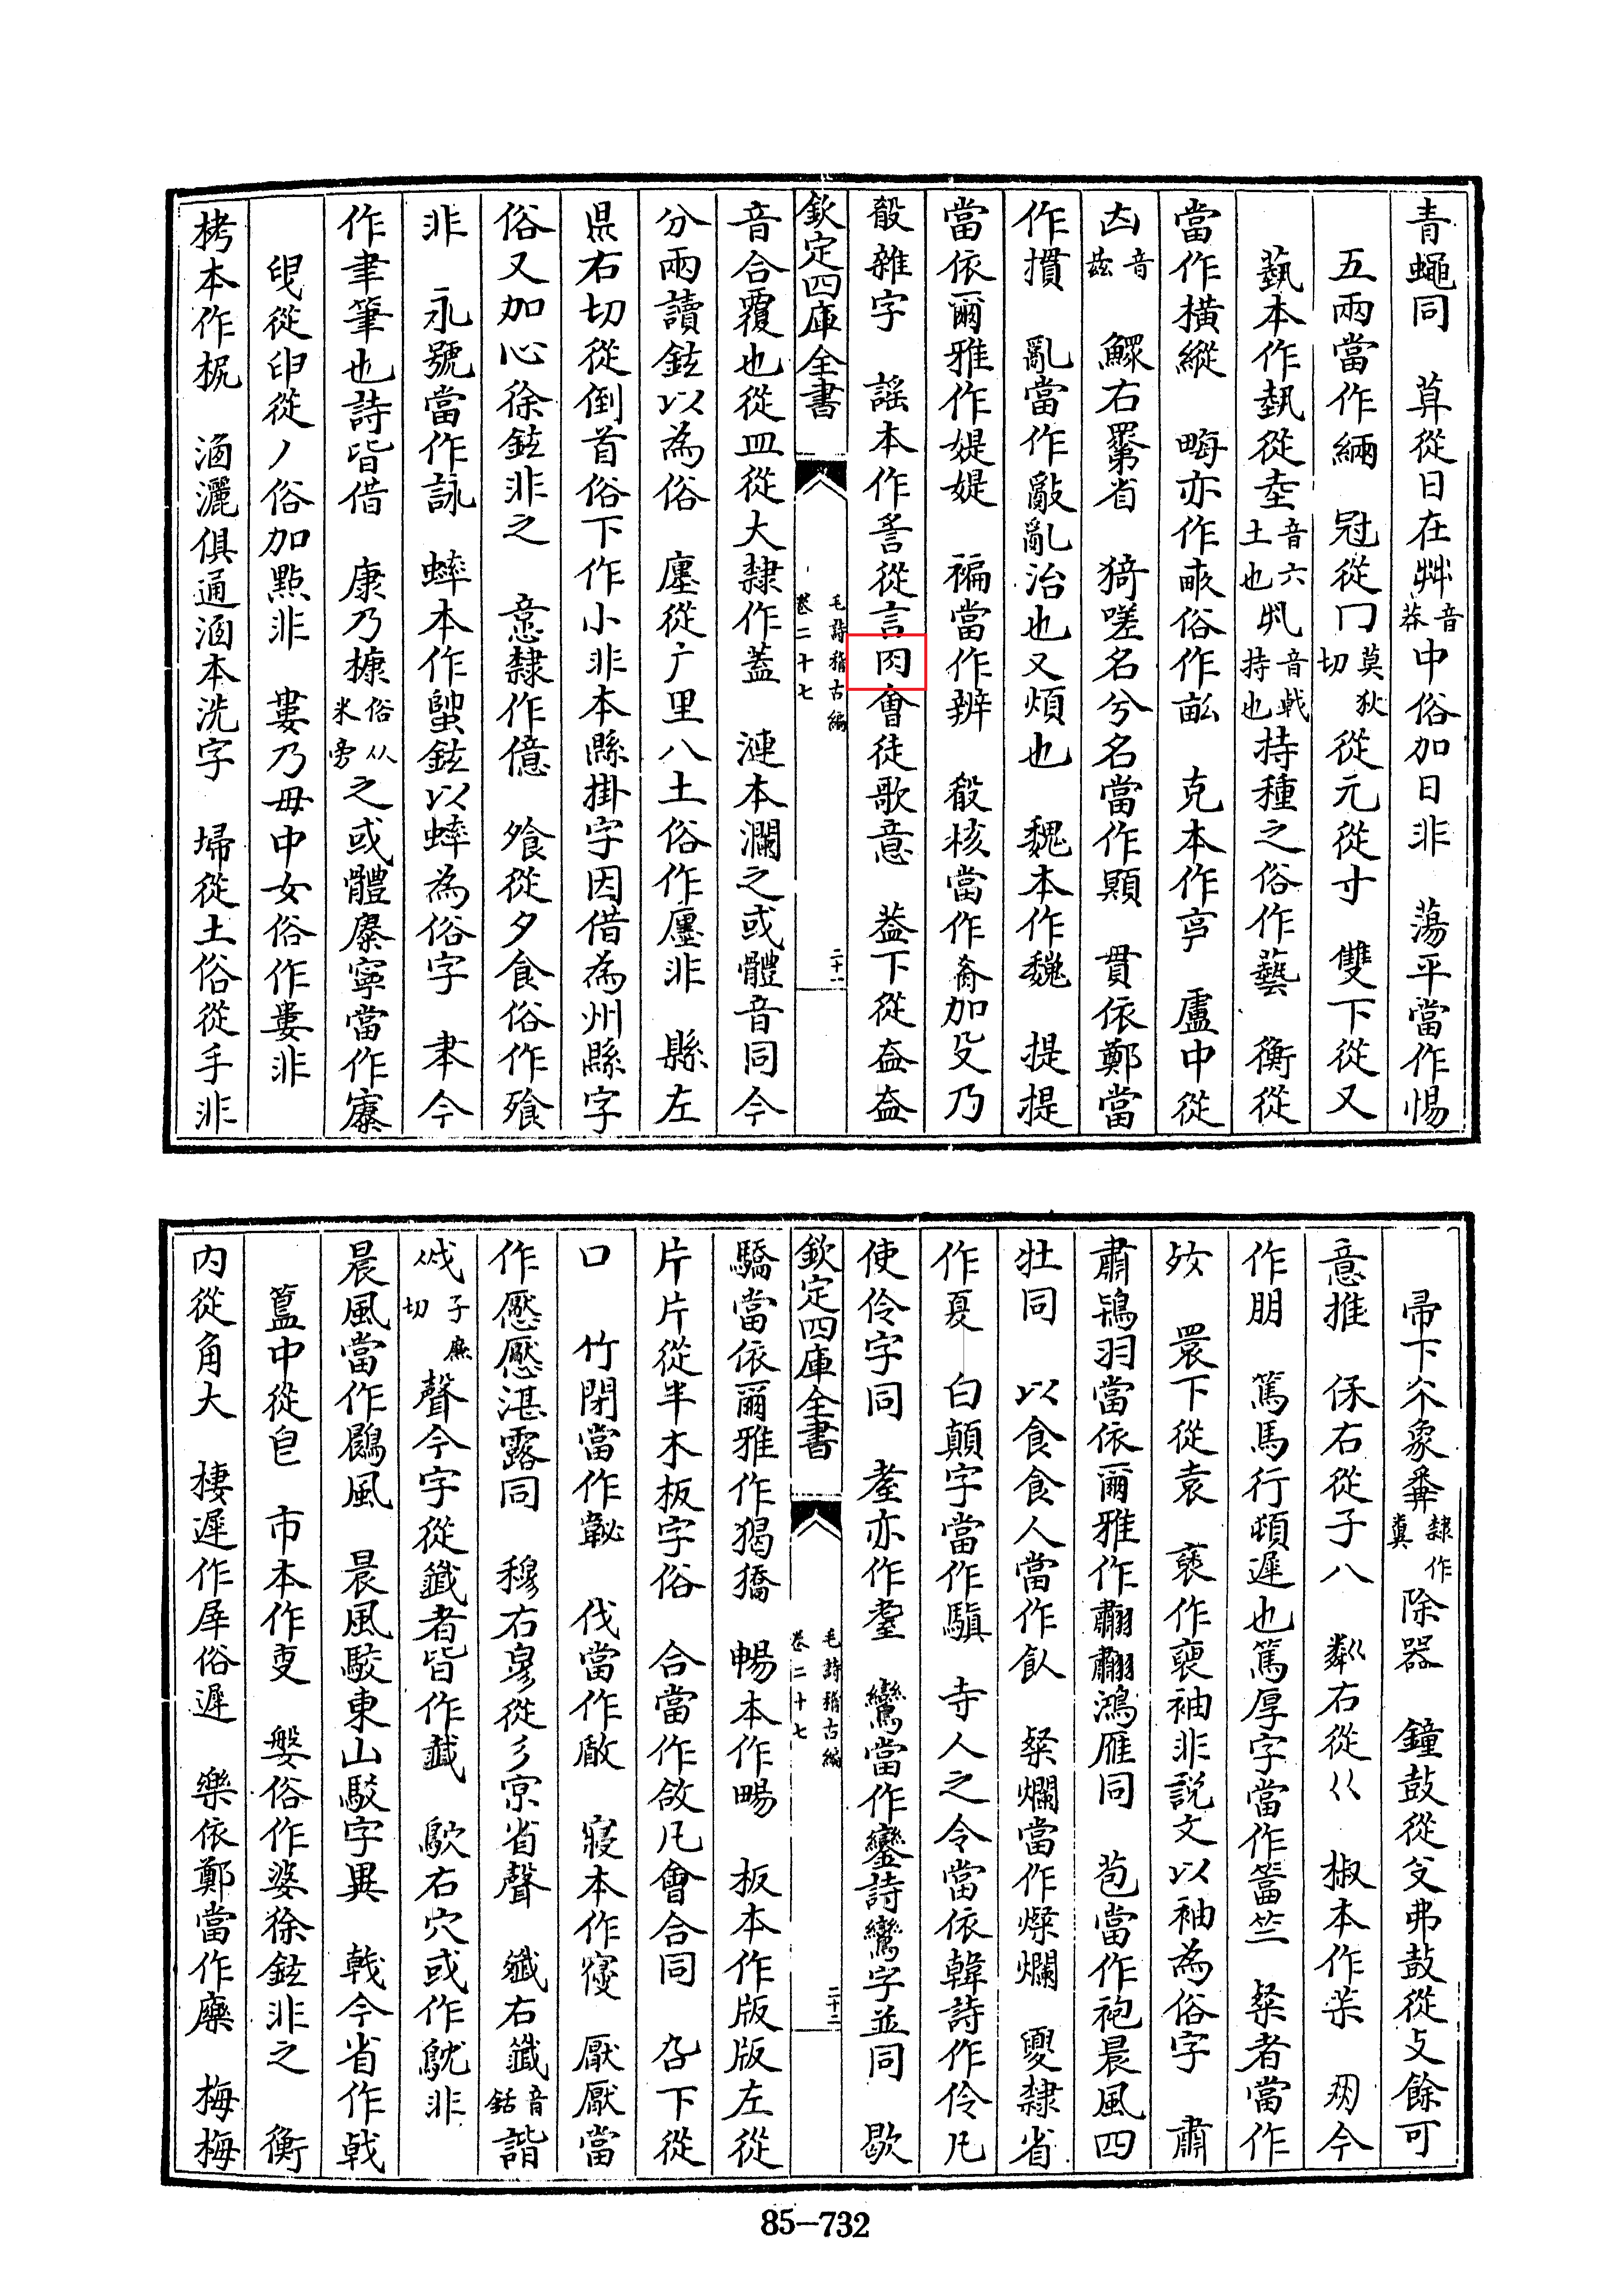 青蠅同　䒤從日在茻音莽中俗加日非　蕩平當作惕
五兩當作緉　冠從冂莫狄切從元從寸　雙下從又
蓺本作埶從坴音六土也丮音戟持也持種之俗作藝　衡從
當作横縱　畮亦作畞俗作畝　克本作亨　盧中從
甾音兹　鰥右罤省　猗嗟名兮名當作顯　貫依鄭當
作摜　亂當作敽亂治也又煩也　魏本作巍　提提
當依爾雅作媞媞　褊當作辨　殽核當作肴加殳乃
殽雜字　謡本作䚻從言肉會徒歌意　葢下從盇盇
欽定四庫全書　毛詩稽古編　卷二十七　二十一
音合覆也從皿從大隸作蓋　漣本瀾之或體音同今
分兩讀鉉以為俗　廛從广里八土俗作㕓非　縣左
県右切從倒首俗下作小非本縣掛字因借為州縣字
俗又加心徐鉉非之　意隸作億　飱從夕食俗作飱
非　永號當作詠　蟀本作䘗鉉以蟀為俗字　聿今
作聿筆也詩皆借　康乃穅俗从米旁之或體糜寧當作㝩
㫐從卬從丿俗加點非　婁乃毋中女俗作婁非
栲本作㭒　洒灑俱通洒本洗字　埽從土俗從手非
帚下𠆢象糞隸作糞除器　鐘鼓從攴弗鼓從攴餘可
意推　保右從子八　粼右從巜　椒本作茮　朋今
作朋　篤馬行頓遲也篤厚字當作䈞竺　粲者當作
㚣　睘下從袁　褎作褏袖非説文以袖為俗字　肅
肅鴇羽當依爾雅作翿翿鴻雁同　苞當作袍晨風四
牡同　以食食人當作飤　粲爛當作燦爛　夏隸省
作夏　白顛字當作䮪　寺人之令當依韓詩作伶凡
使伶字同　耋亦作耊　鸞當作鑾詩鸞字並同　歇
欽定四庫全書　毛詩稽古編　卷二十七　二十二
驕當依爾雅作猲獢　暢本作畼　板本作版版左從
片片從半木板字俗　合當作敆凡會合同　㕣下從
口　竹閉當作䪐　伐當作瞂　寢本作寑　厭厭當
作懕懕湛露同　穆右㣎從彡𡭴省聲　殲右韱音銛諧
㦰子廉切聲今字從韱者皆作韯　鴥右穴或作鴪非
晨風當作鷐風　晨風駮東山駁字異　戟今省作戟
簋中從皀　市本作㞢　婆俗作婆徐鉉非之　衡
内從角大　棲遲作犀俗遲　樂依鄭當作𤻲　梅梅
85—732